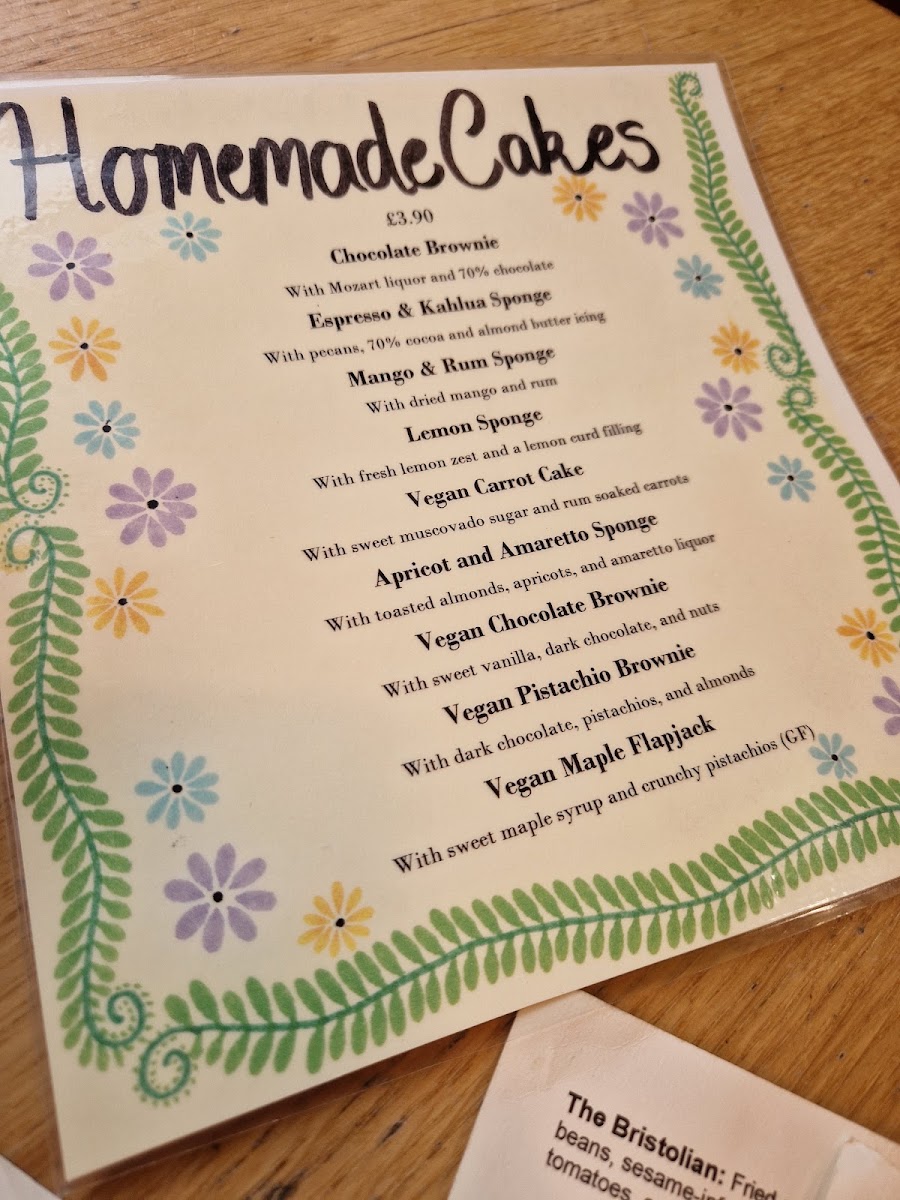 Homemade Cakes
£3.90
Chocolate Brownie
With Mozart liquor and 70% chocolate
Espresso & Kahlua Sponge
With pecans, 70% cocoa and almond butter icing
Mango & Rum Sponge
With dried mango and rum
Lemon Sponge
With fresh lemon zest and a lemon curd filling
Vegan Carrot Cake
With sweet muscovado sugar and rum soaked carrots
Apricot and Amaretto Sponge
With toasted almonds, apricots, and amaretto liquor
Vegan Chocolate Brownie
With sweet vanilla, dark chocolate, and nuts
Vegan Pistachio Brownie
With dark chocolate, pistachios, and almonds
Vegan Maple Flapjack
With sweet maple syrup and crunchy pistachios (GF)
The Bristolian: Fried
beans, sesame-in
tomatoes,